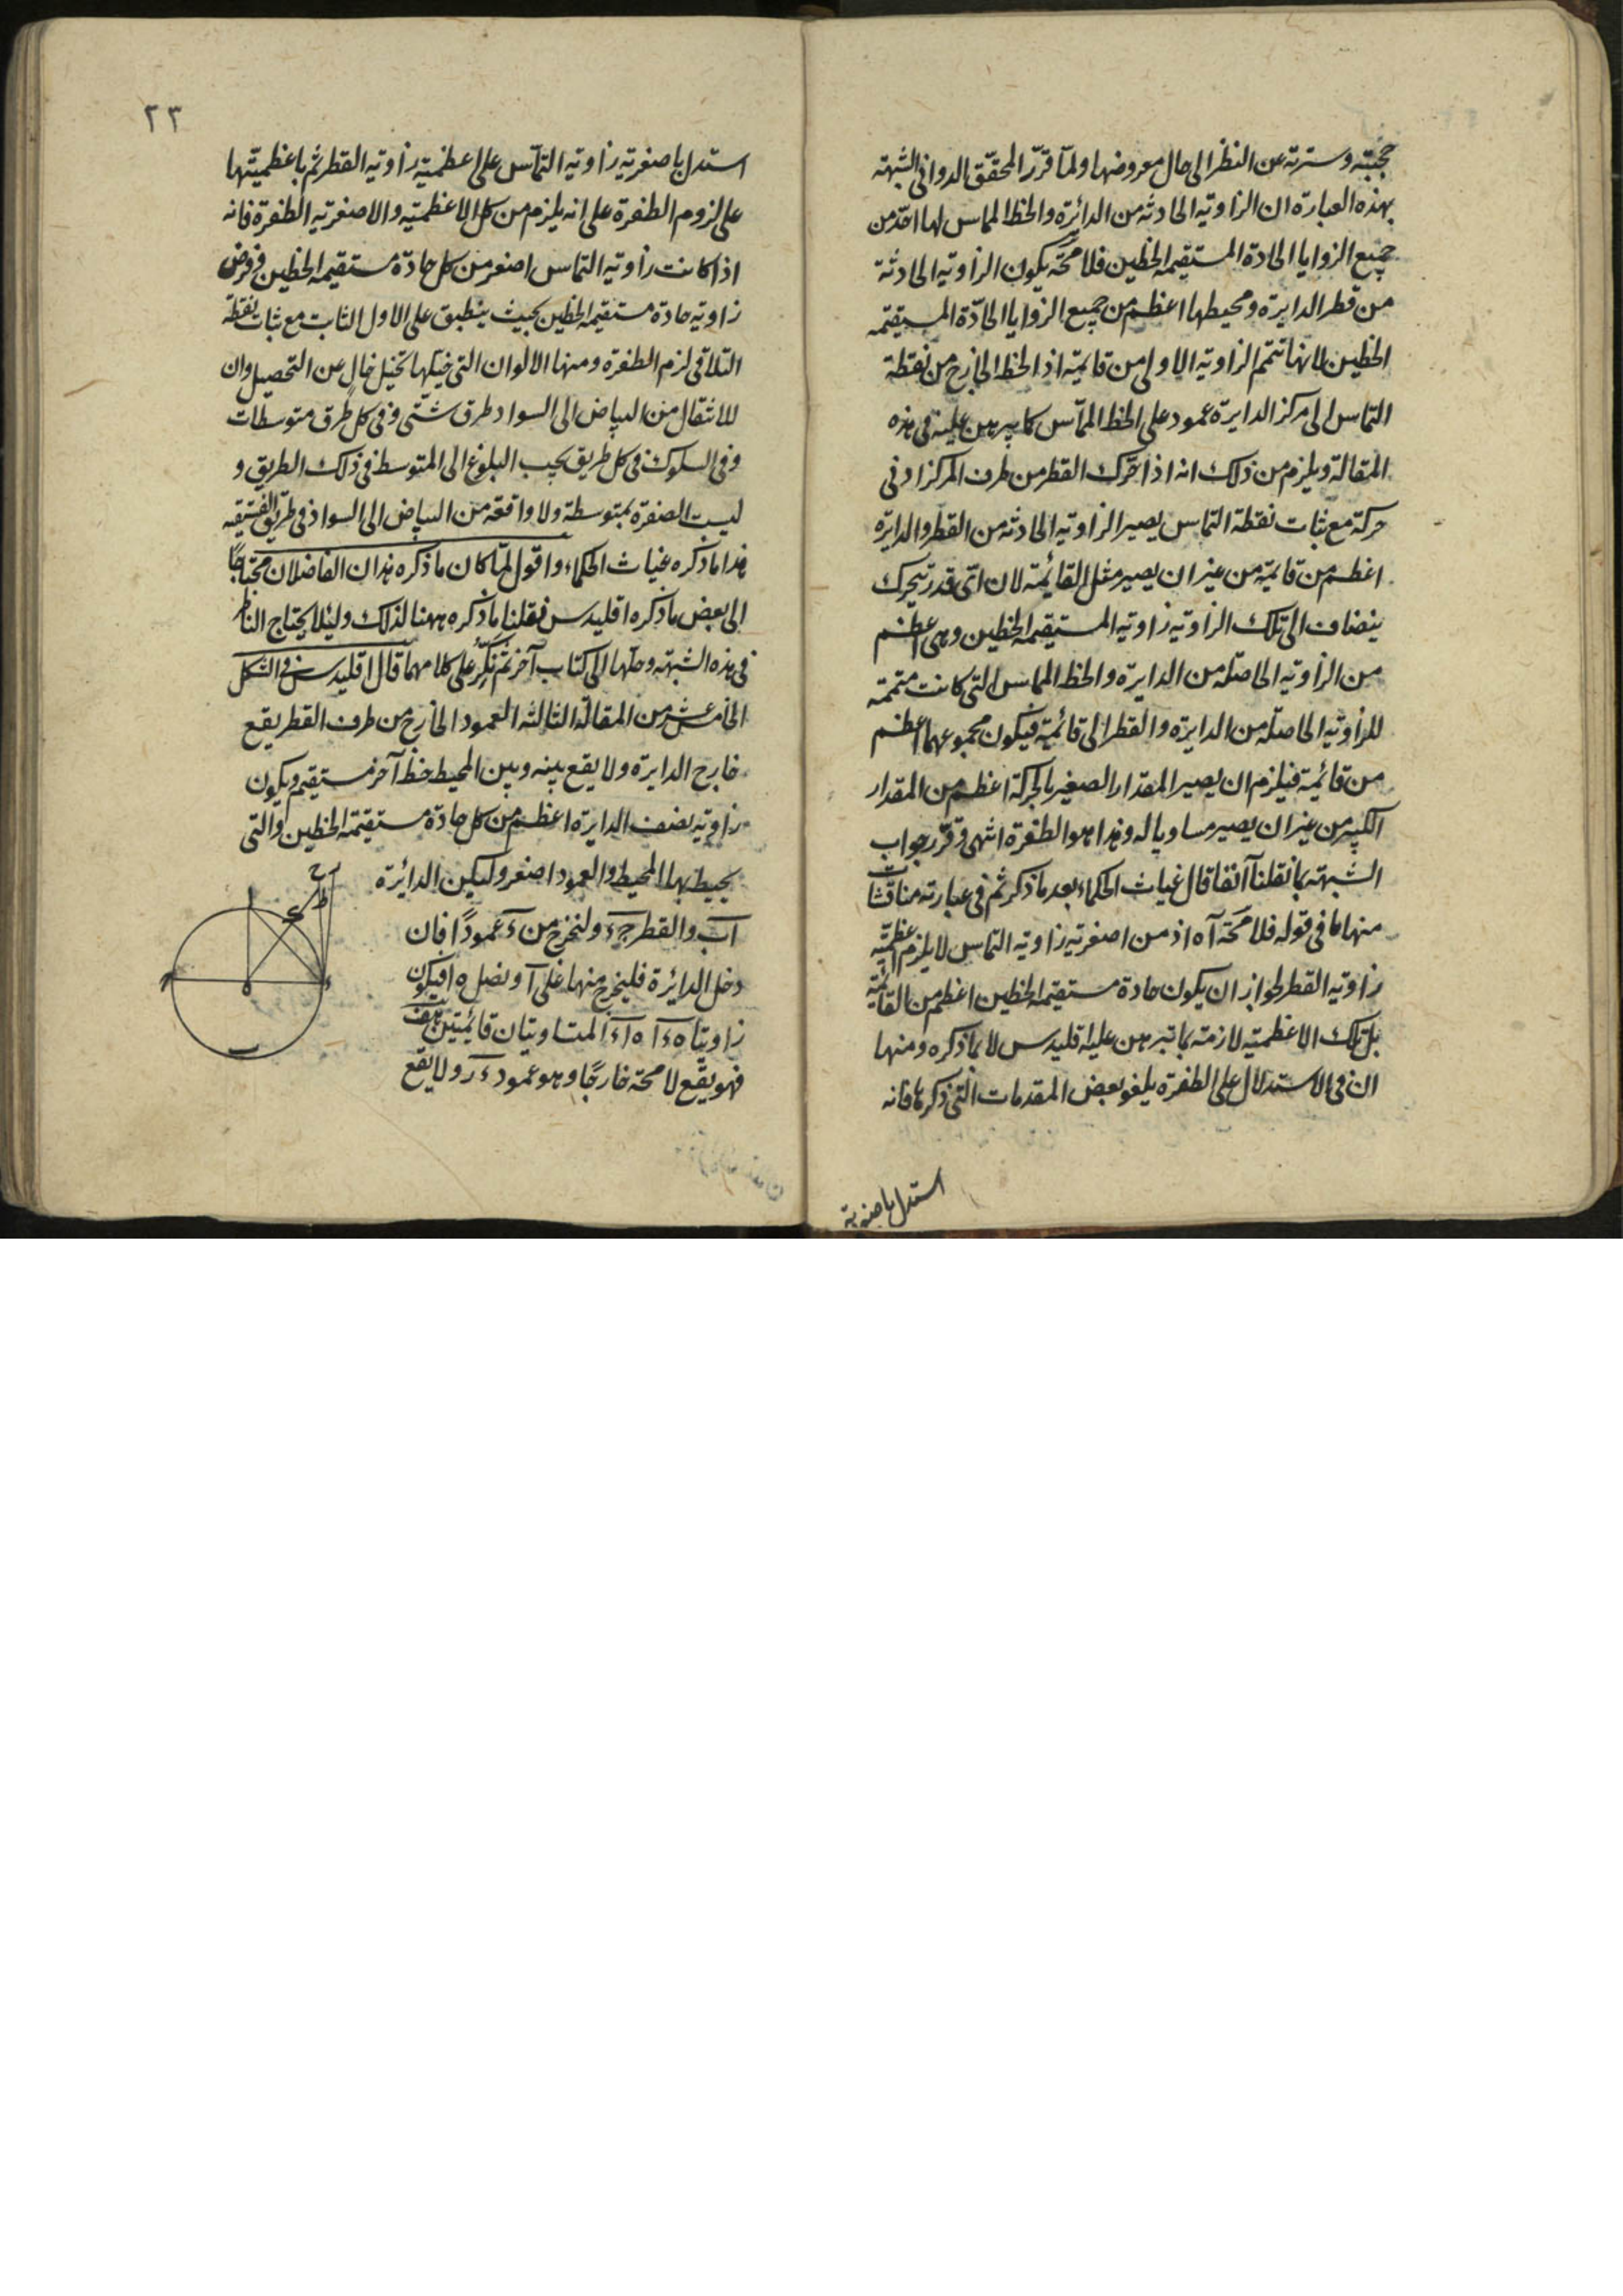 حجبته وسترته عن النظر الى حال معروضها ولما قرر المحقق الدواني الشبهة
بهذه العبارة ان الزاوية الحادثة من الدائرة والخط المماس لها احدّ من
جميع الزوايا الحادة المستقيمة الخطين فلا محة يكون الزاوية الحادثة
من قطر الدايرة ومحيطها اعظم من جميع الزوايا الحادّة المستقيمة
الخطين لانها تتمم الزاوية الاولى من قايمة اذ الخط الخارج من نقطة
التماس الى مركز الدايرة عمود على الخط المماس كما يبرهن عليه فى هذه
المقالة ويلزم من ذلك انه اذا تحرك القطر من طرف المركز ادنى
حركة مع ثبات نقطة التماس يصير الزاوية الحادثة من القطر والدايرة
اعظم من قايمة من غير ان يصير مثل القائمة لان اىّ قدر يتحرك
ينضاف الى تلك الزاوية زاوية المستقيمة الخطين وهى اعظم
من الزاوية الحاصلة من الدايرة والخط المماس التى كانت متممة
للزاوية الحاصلة من الدايرة والقطر الى قائمة فيكون مجموعهما اعظم
من قائمة فيلزم ان يصير المقدار الصغير بالحركة اعظم من المقدار
الكبير من غير ان يصير مساويا له وهذا هو الطفرة انتهى وقرر جواب
الشبهة بما نقلنا آنفا قال غياث الحكماء بعد ما ذكر ثم فى عبارته مناقشات
منها ما فى قوله فلا محة آه اذ من اصغرية زاوية التماس لا يلزم اعظمية
زاوية القطر لجواز ان يكون حادة مستقيمة الخطين اعظم من القائمة
بل تلك الاعظمية لازمة بما تبرهن عليه اقليدس لا بما ذكره ومنها
ان فى الاستدلال على الطفرة يلغو بعض المقدمات التى ذكرها فانه
استدل باصغرية
٢٣
استدل باصغرية زاوية التماس على اعظمية زاوية القطر ثم باعظميتها
على لزوم الطفرة على انه يلزم من كل الاعظمية والاصغرية الطفرة فانه
اذا كانت زاوية التماس اصغر من كل حادة مستقيمة الخطين ففرض
زاوية حادة مستقيمة الخطين بحيث ينطبق على الاول الثابت مع ثبات نقطة
التلاقى لزم الطفرة ومنها الالوان التى خيلها تخيل خال عن التحصيل وان
للانتقال من البياض الى السواد طرق شتى وفى كل طرق متوسطات
وفى السلوك فى كل طريق يجب البلوغ الى المتوسط فى ذلك الطريق و
ليست الصفرة بمتوسطة ولا واقعة من البياض الى السواد فى طريق
هذا ما ذكره غياث الحكماء واقول لما كان ما ذكره هذان الفاضلان محتاجًا
الى بعض ما ذكره اقليدس فنقلنا ما ذكره ههنا لذلك ولئلا يحتاج الناظر
فى هذه الشبهة وحلها الى كتاب آخر ثم نكرّ على كلامهما قال اقليدس فى الشكل
الخامس عشر من المقالة الثالثة العمود الخارج من طرف القطر يقع
خارج الدايرة ولا يقع بينه وبين المحيط خط آخر مستقيم ويكون
زاوية نصف الدايرة اعظم من كل حادة مستقيمة الخطين والتى
يحيط بها المحيط والعمود اصغر وليكن الدائرة
اب والقطر جء ولنخرج من ء عمودًا فان
دخل الدائرة فليخرج منها على آ ونصل ه ا فيكون
زاويتا ه ء ا ه ا ء المتساويتان قايمتين هف
فهو يقع لا محة خارجًا وهو عمود ء ر ولا يقع